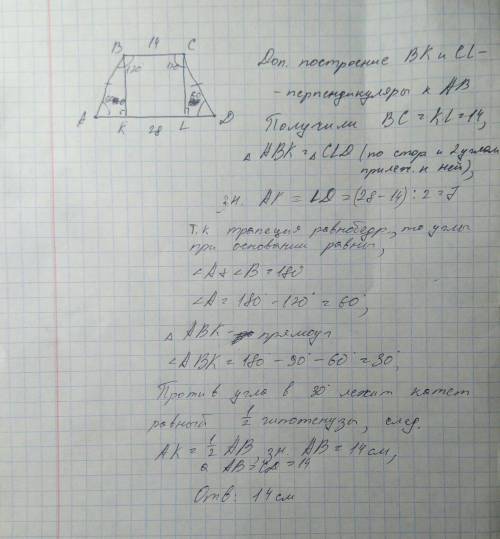 B 14 C
120
A K 28 L D
Доп. построение BK и CL –
- перпендикуляры к AB
Получили BC = KL = 14,
△ ABK = △ CLD (по стор и 2 углам
прилеж. к ней),
зн. AK = LD = (28 - 14) : 2 = 7
Т.к. трапеция равнобедр, то углы
при основании равны,
∠A + ∠B = 180°
∠A = 180° - 120° = 60°,
△ ABK - прямоуг
∠ABK = 180 - 90° - 60° = 30°,
Против угла в 30° лежит катет
равный 1/2 гипотенузы, след.
AK = 1/2 AB, зн. AB = 14 см,
AB = CD = 14
Отв: 14 см